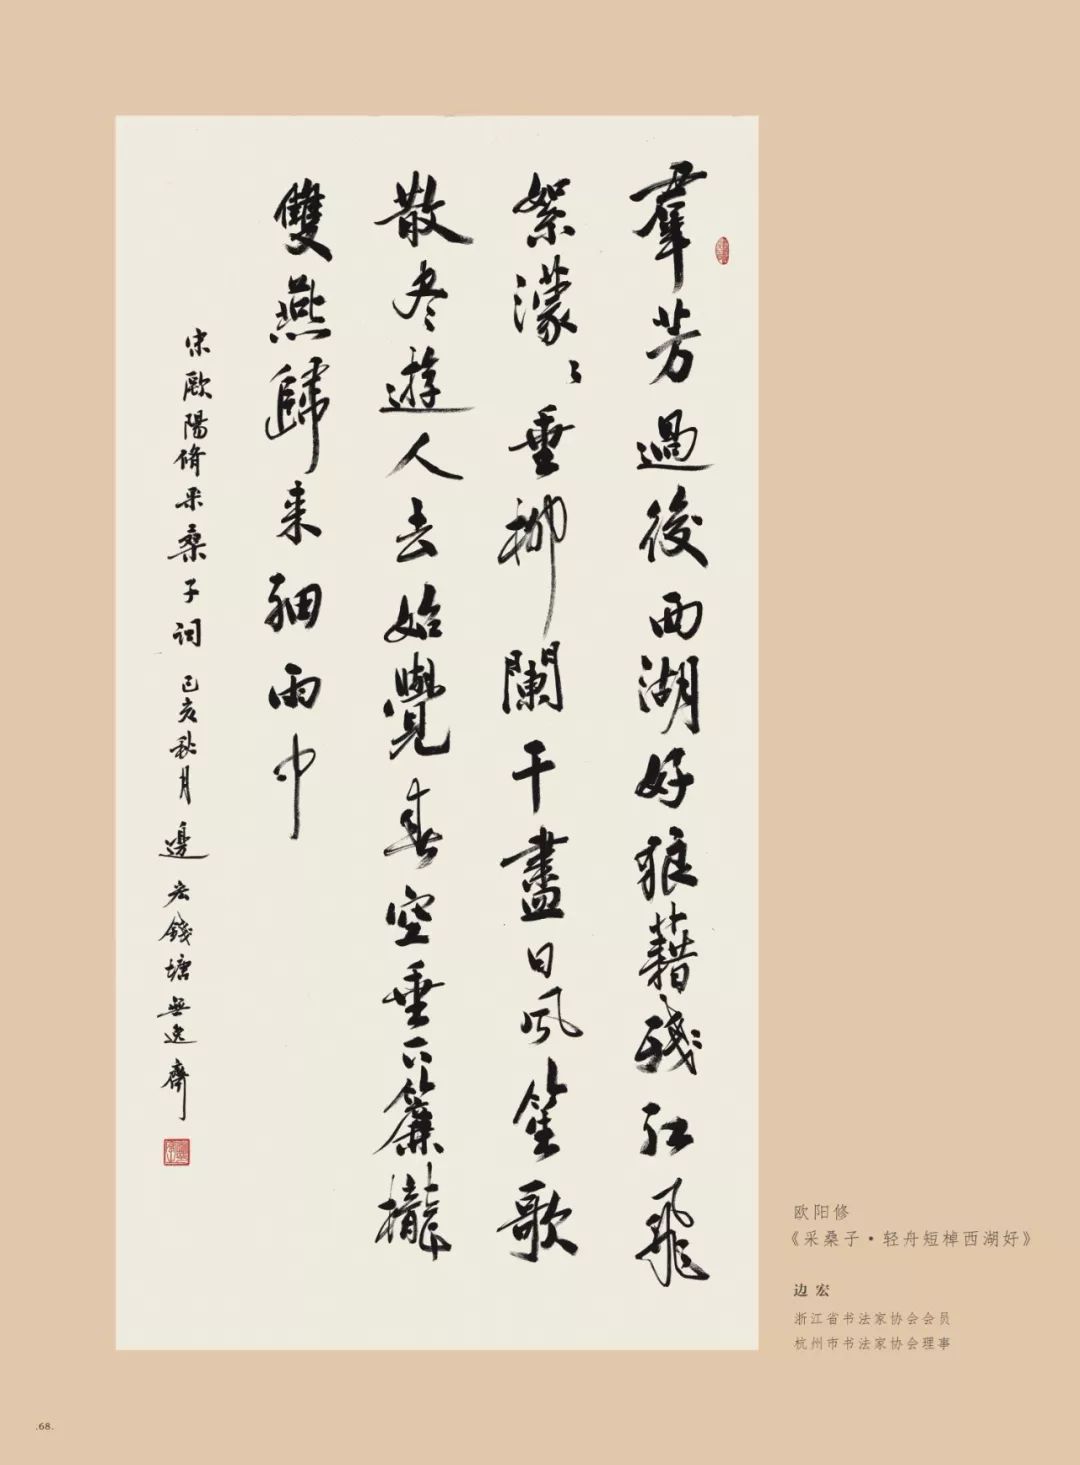 羣芳過後西湖好狼藉殘紅飛
絮濛〻垂柳闌干盡日風笙歌
散盡遊人去始覺春空垂下簾櫳
雙燕歸来細雨中
宋歐陽脩采桑子詞 己亥秋月 邊宏錢塘無逸齋
欧阳修
《采桑子·轻舟短棹西湖好》
边宏
浙江省书法家协会会员
杭州市书法家协会理事
.68.